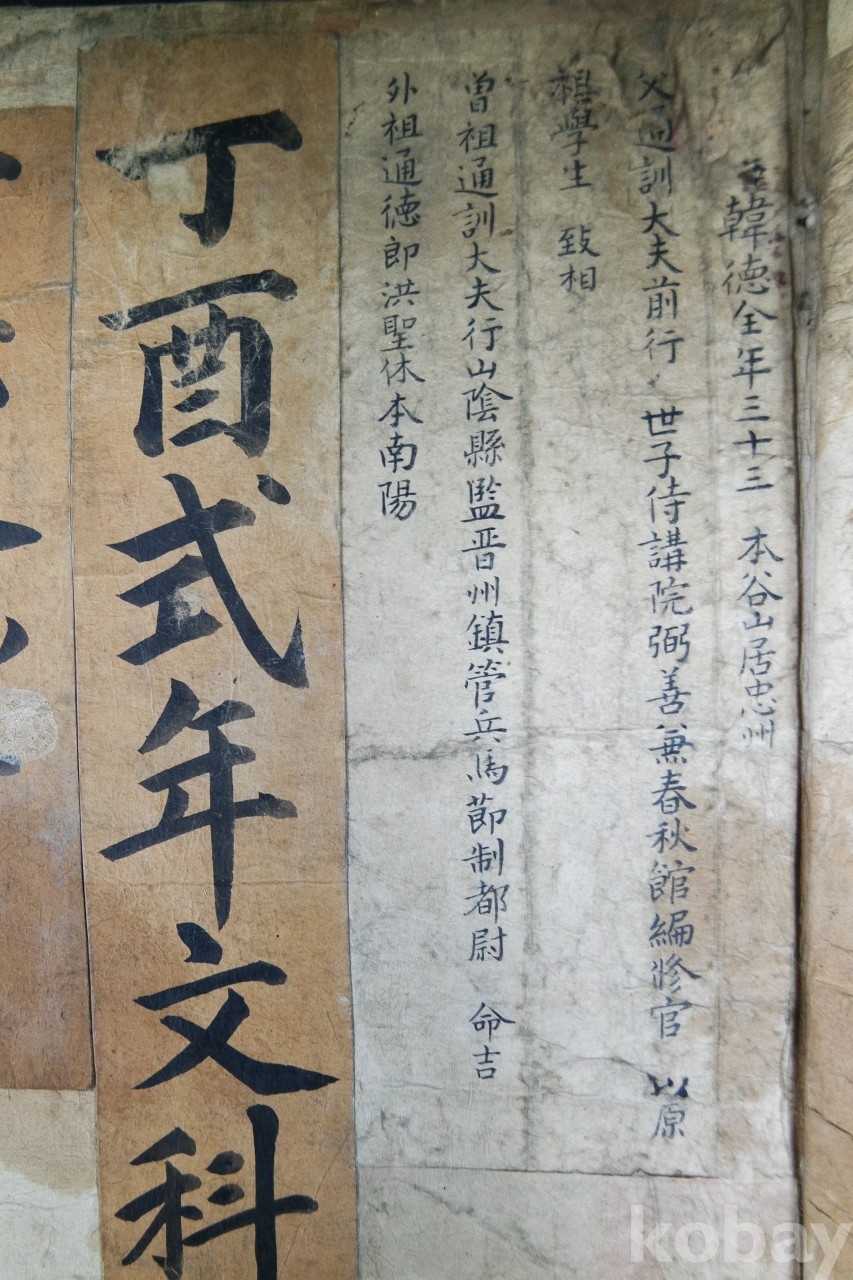 韓德全年三十三 本谷山居忠州
父通訓大夫前行 世子侍講院弼善兼春秋館編修官 以原
祖學生 致相
曾祖通訓大夫行山陰縣監晋州鎮管兵馬節制都尉 命吉
外祖通德郎洪聖休本南陽
丁酉式年文科
kobay